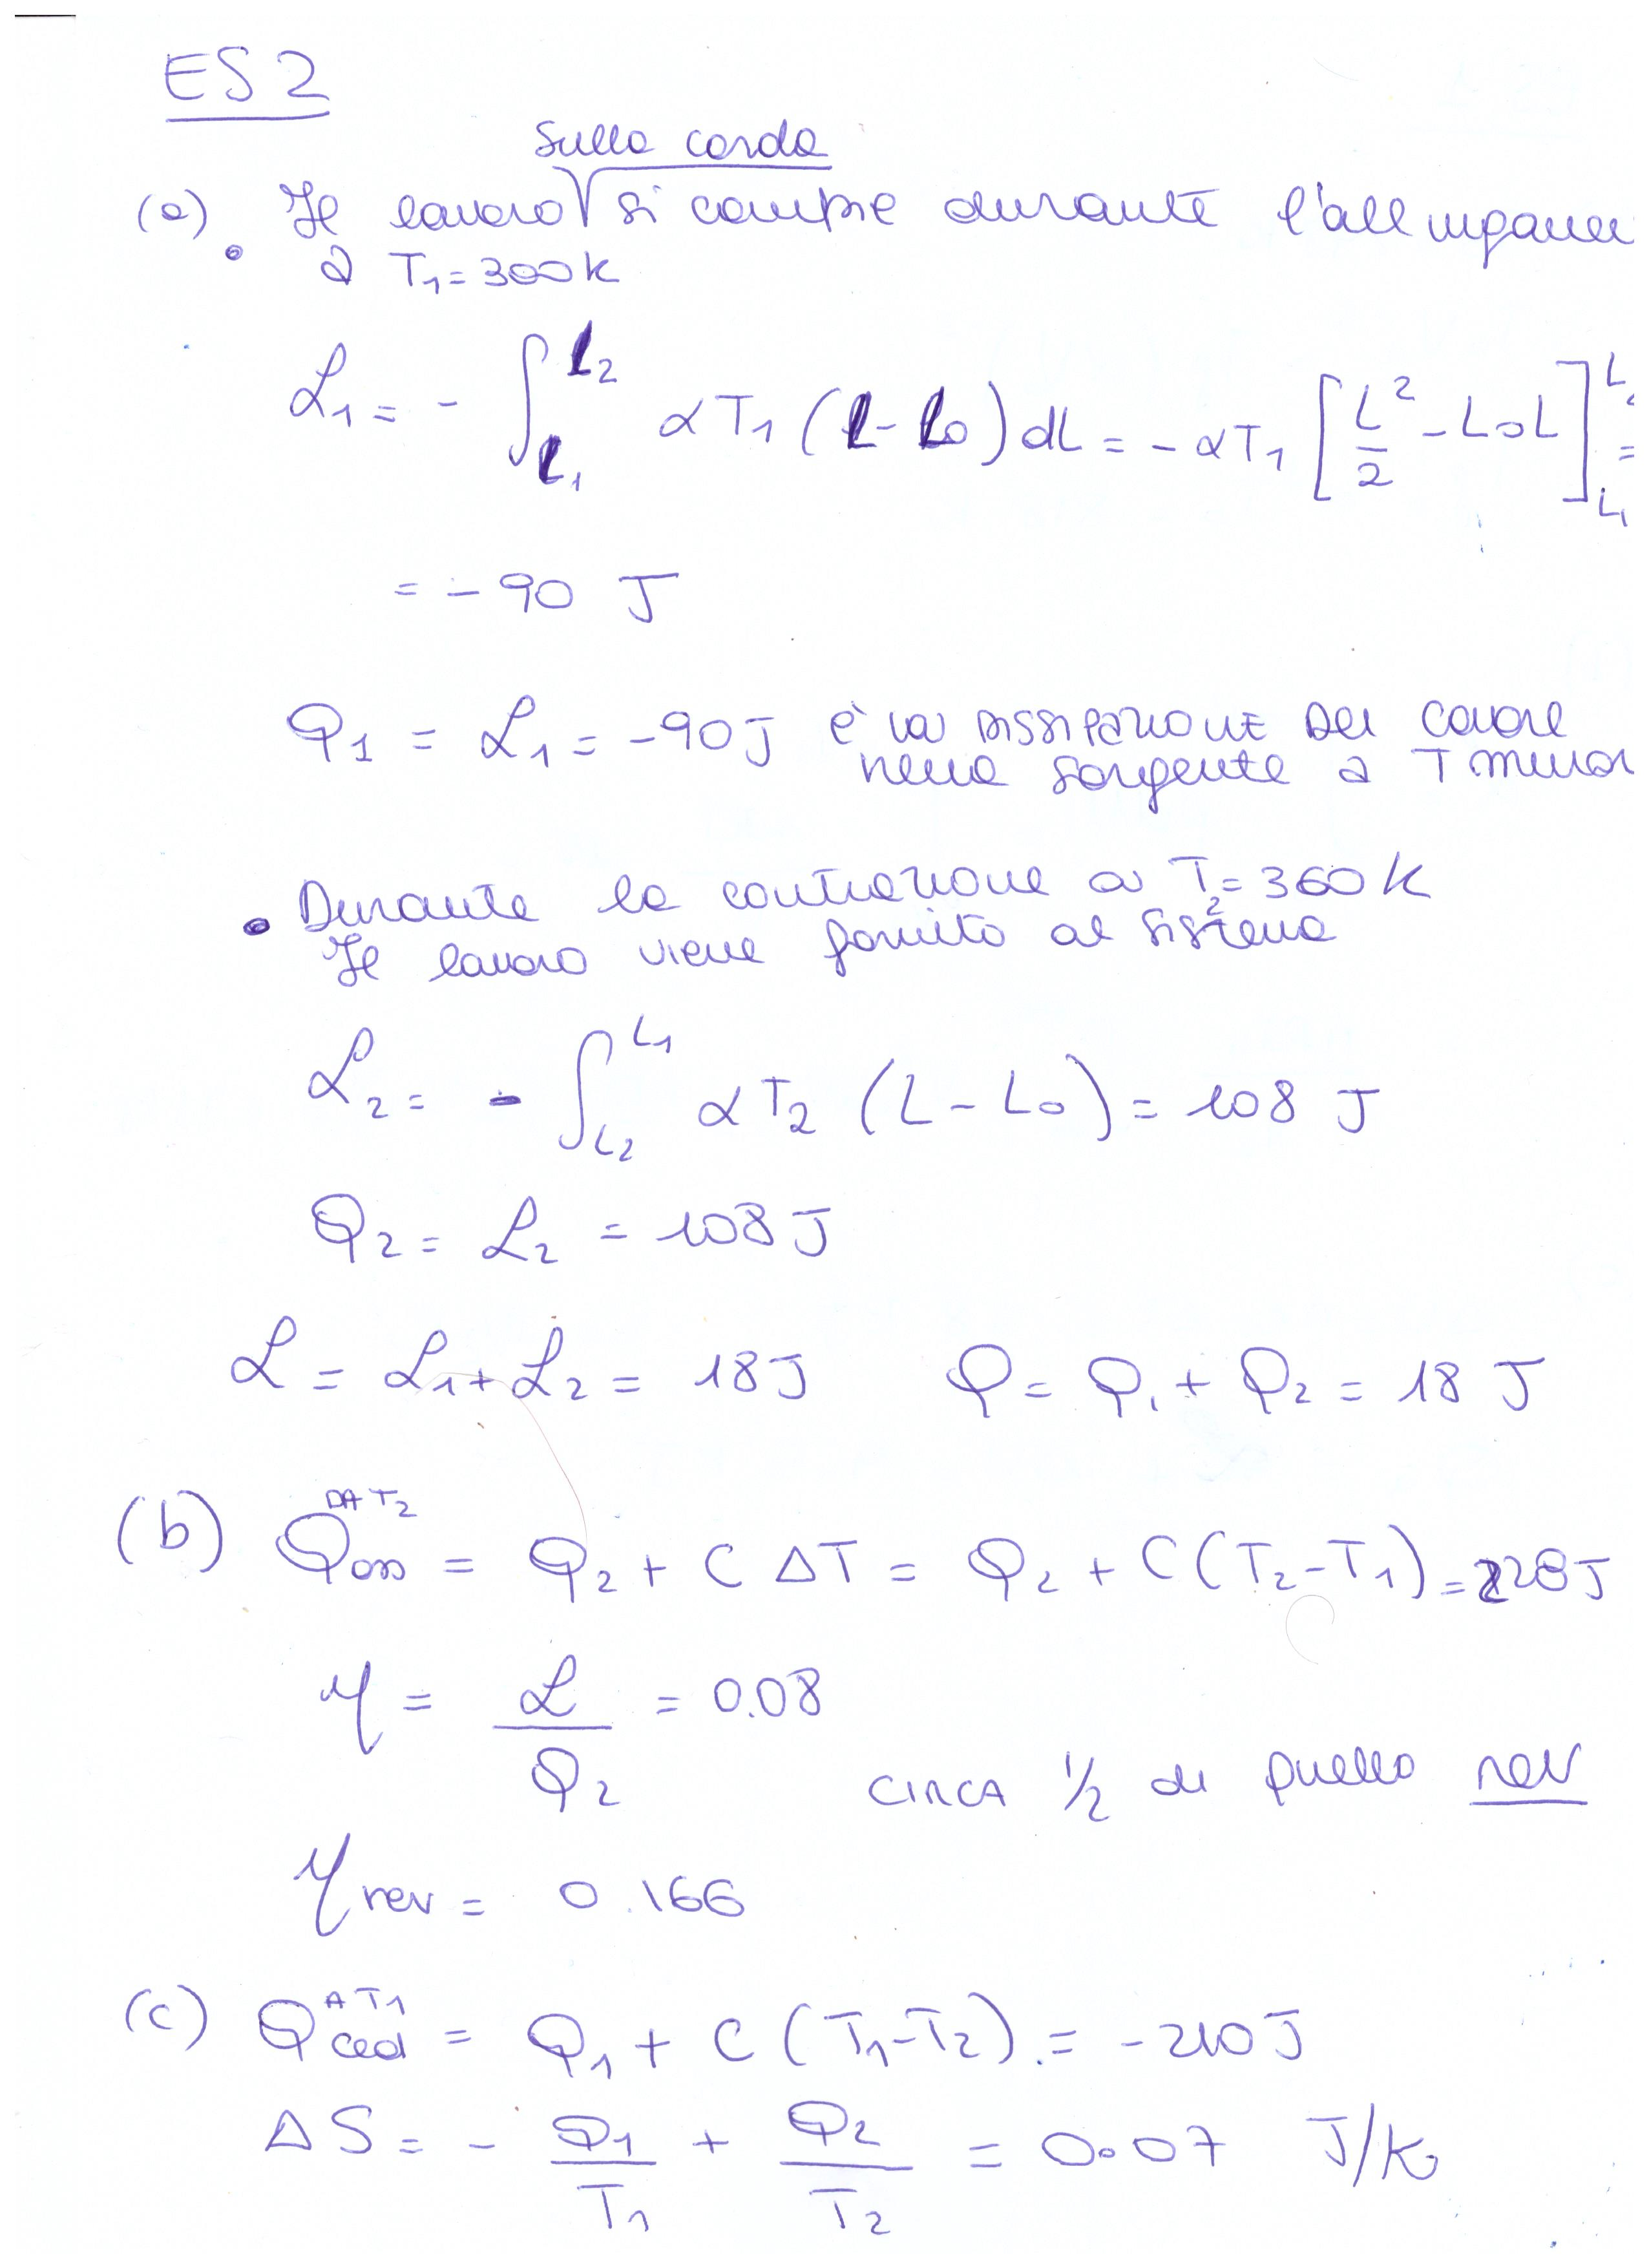 ES 2
sulla corda
(a). Il lavoro √ si compie durante l'allungamen
a T₁ = 300 K
ℒ₁ = - ∫_{L₁}^{L₂} αT₁ (L - L₀) dL = - αT₁ [L²/2 - L₀L]_{L₁}^{L₂} =
= - 90 J
Q₁ = ℒ₁ = -90 J è la DISSIPAZIONE DEL Calore
nella sorgente a T minor
• Durante la contrazione a T₂ = 360 K
Il lavoro viene fornito al sistema
ℒ₂ = - ∫_{L₂}^{L₁} αT₂ (L - L₀) = 108 J
Q₂ = ℒ₂ = 108 J
ℒ = ℒ₁ + ℒ₂ = 18 J Q = Q₁ + Q₂ = 18 J
(b) Q_{ass}^{DA T₂} = Q₂ + C ΔT = Q₂ + C (T₂ - T₁) = 228 J
η = ℒ/Q₂ = 0.08
CIRCA 1/2 di quello rev
η_{rev} = 0.166
(c) Q_{ced}^{A T₁} = Q₁ + C (T₁ - T₂) = - 210 J
ΔS = - Q₁/T₁ + Q₂/T₂ = 0.07 J/K